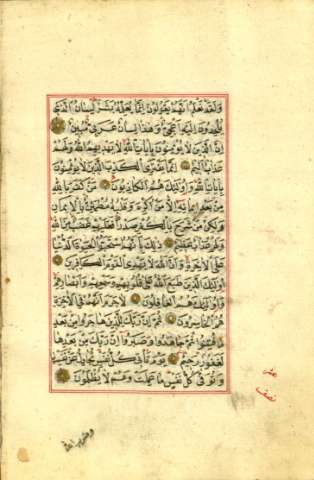 وَلَقَدْ نَعْلَمُ اَنَّهُمْ يَقُولُونَ اِنَّمَا يُعَلِّمُهُ بَشَرٌ لِسَانُ الَّذِي
يُلْحِدُونَ اِلَيْهِ اَعْجَمِيٌّ وَهٰذَا لِسَانٌ عَرَبِيٌّ مُبِينٌ
اِنَّ الَّذِينَ لَا يُؤْمِنُونَ بِاٰيَاتِ اللّٰهِ لَا يَهْدِيهِمُ اللّٰهُ وَلَهُمْ
عَذَابٌ اَلِيمٌ اِنَّمَا يَفْتَرِي الْكَذِبَ الَّذِينَ لَا يُؤْمِنُونَ
بِاٰيَاتِ اللّٰهِ وَاُولٰئِكَ هُمُ الْكَاذِبُونَ مَنْ كَفَرَ بِاللّٰهِ
مِنْ بَعْدِ اِيمَانِهِ اِلَّا مَنْ اُكْرِهَ وَقَلْبُهُ مُطْمَئِنٌّ بِالْاِيمَانِ
وَلٰكِنْ مَنْ شَرَحَ بِالْكُفْرِ صَدْرًا فَعَلَيْهِمْ غَضَبٌ مِنَ اللّٰهِ
وَلَهُمْ عَذَابٌ عَظِيمٌ ذٰلِكَ بِاَنَّهُمُ اسْتَحَبُّوا الْحَيٰوةَ الدُّنْيَا
عَلَى الْاٰخِرَةِ وَاَنَّ اللّٰهَ لَا يَهْدِي الْقَوْمَ الْكَافِرِينَ
اُولٰئِكَ الَّذِينَ طَبَعَ اللّٰهُ عَلٰى قُلُوبِهِمْ وَسَمْعِهِمْ وَاَبْصَارِهِمْ
وَاُولٰئِكَ هُمُ الْغَافِلُونَ لَا جَرَمَ اَنَّهُمْ فِي الْاٰخِرَةِ
هُمُ الْخَاسِرُونَ ثُمَّ اِنَّ رَبَّكَ لِلَّذِينَ هَاجَرُوا مِنْ بَعْدِ
مَا فُتِنُوا ثُمَّ جَاهَدُوا وَصَبَرُوا اِنَّ رَبَّكَ مِنْ بَعْدِهَا
لَغَفُورٌ رَحِيمٌ يَوْمَ تَأْتِي كُلُّ نَفْسٍ تُجَادِلُ عَنْ نَفْسِهَا
وَتُوَفّٰى كُلُّ نَفْسٍ مَا عَمِلَتْ وَهُمْ لَا يُظْلَمُونَ
نصف
وضرب الله